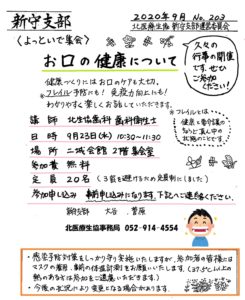 新守支部
2020年9月 No.203
北医療生協 新守支部運営委員会
<よっといで集会>
お口の健康について
久々の
行事の開催
です。ぜひ
ご参加
ください！
健康づくりにはお口のケアも大切。
*フレイル予防にも！ 免疫力向上にも！
わかりやすく楽しくお話していただきます。
*フレイルとは
講師 北生協歯科 歯科衛生士
日時 9月23日(水) 10:30〜11:30
場所 二城会館 2階集会室
参加費 無料
定員 20名 (3密を避けるため定員制に)
参加申し込み 事前申し込みになります。下記へご連絡ください。
新守支部 大谷 菅原
北医療生協事務局 052-914-4554
・感染予防対策をしっかり守り実施いたしますが、参加者の皆様には
マスクの着用、事前の体温測定をお願いいたします。(37.5℃以上の
熱のある方は参加をご遠慮いただきます。)
・今後の状況により変更となる場合があります。